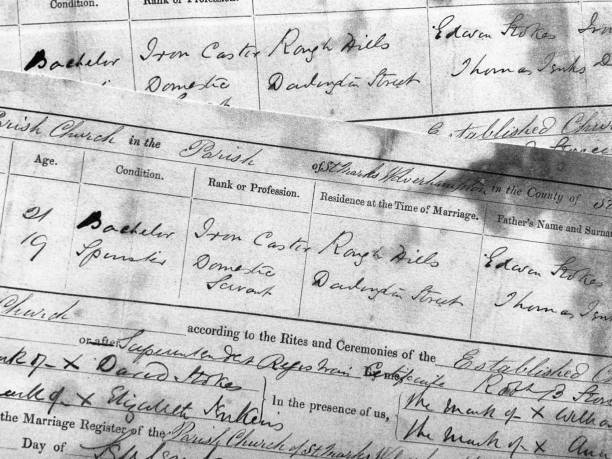 Condition. Rank or Profession.
Bachelor Iron Caster Rough Hills Edwin Stokes Iron
Domestic Darlington Street Thomas Jenks
Established Church
Parish Church in the Parish of St Marks Wolverhampton in the County of
Age. Condition. Rank or Profession. Residence at the Time of Marriage. Father's Name and Surna
21 Bachelor Iron Caster Rough Hills Edwin Stokes
19 Spinster Domestic Servant Darlington Street Thomas
Church according to the Rites and Ceremonies of the Established C
or after Superintendent Registrar Certificate by me,
mark of X David Stokes
mark of X Elizabeth In the presence of us,
the mark of X Willia
the mark of X
the Marriage Register of the Parish Church of St Marks
Day of